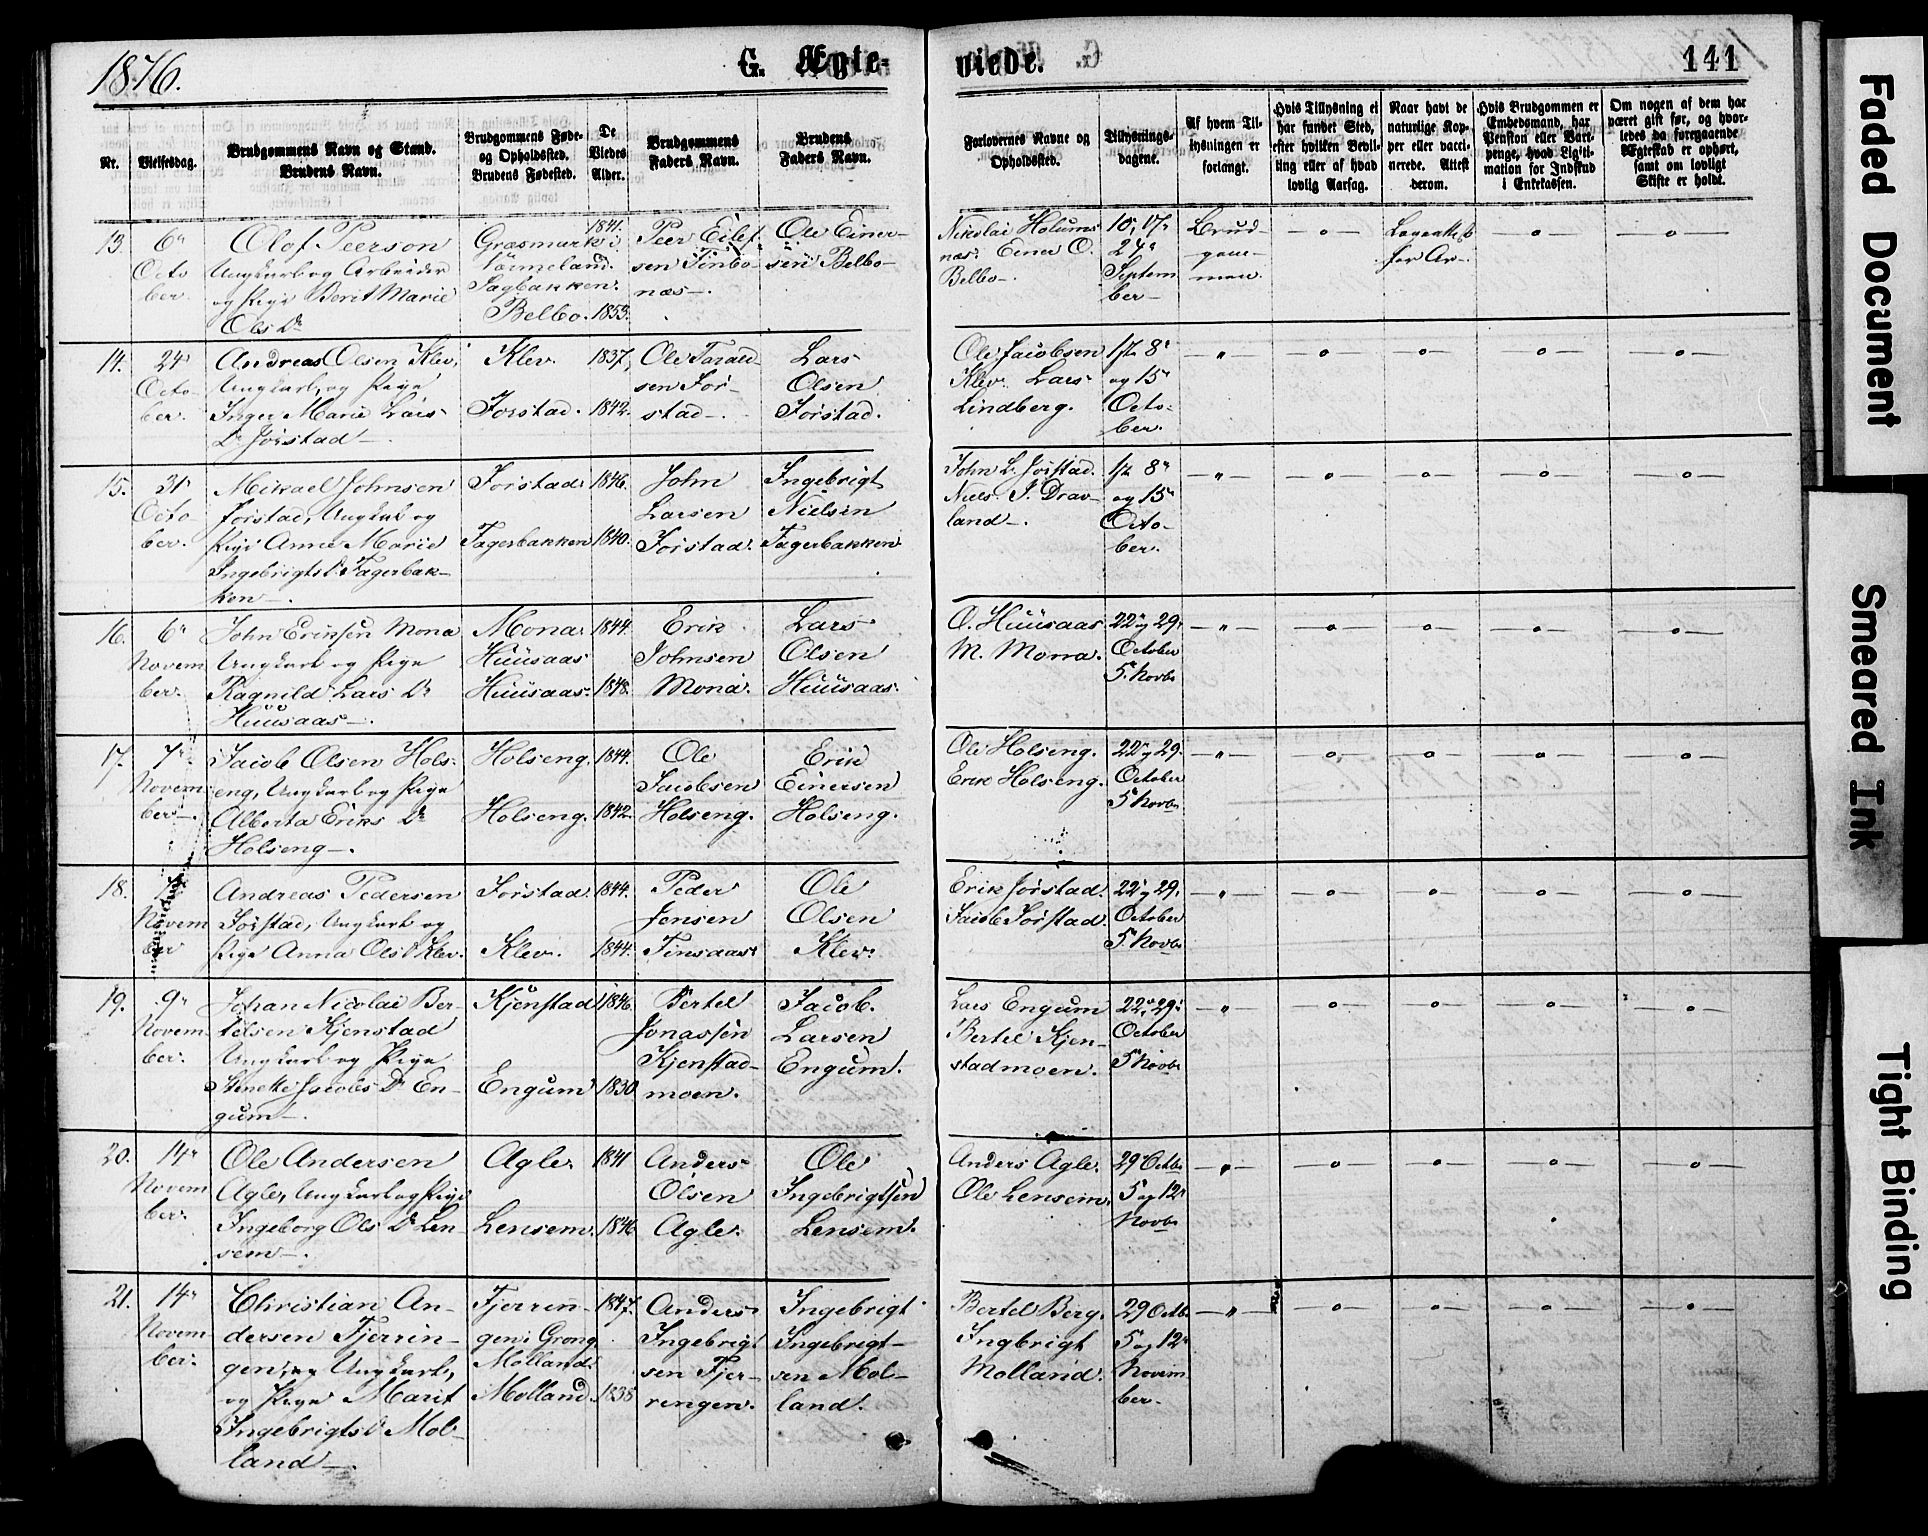 1876.
G. Ægte-
viede.
141
Nr.
Vielsesdag.
Brudgommens Navn og Stand.
Brudens Navn.
Brudgommens Føde-
og Opholdssted.
Brudens Fødested.
De
Viedes
Alder.
Brudgommens
Faders Navn.
Brudens
Faders Navn.
Forlovernes Navne og
Opholdssted.
Tillysnings-
dagene.
Af hvem Til-
lysningen er
forlangt.
Hvis Tillysning ei
har fundet Sted,
efter hvilken Bevil-
ling eller af hvad
lovlig Aarsag.
Naar havt de
naturlige Kop-
per eller vacci-
nerede. Attest
derom.
Hvis Brudgommen er
Embedsmand, har
Pension eller Vart-
penge, hvad Legiti-
mation for Indskud
i Enkekassen.
Om nogen af dem har
været gift før, og hvor-
ledes da foregaaende
Ægteskab er ophørt,
samt om lovligt
Skifte er holdt.
13.
6"
Octo
ber.
Olof Peerson
Ungkarl og Arbeider
og Pige Berit Marie
Ols Dr
Græsmark i
Värmeland.
Sagbakken.
Belbo.
1841.
1853.
Peer Eilef-
sen Tinbo-
næs-.
Ole Einer-
sen Belbo-
Nikolai Holums-
næs. Einer O.
Belbo-
10, 17,
24"
Septem
ber-
Brud-
gom-
men.
-o-
for Ar-.
-o-
-o-
14.
24"
Octo-
ber.
Andreas Olsen Klev,
Ungkarl, og Pige
Inger Marie Lars
Dr Jørstad-.
Klev.
Jørstad.
1837,
1842.
Ole Tarald
sen Jør-
stad-.
Lars
Olsen
Jørstad.
Ole Jacobsen
Klev. Lars
Lindberg.
1ste 8"
og 15"
Octo-
ber.
-"-
o
-o-
-o-
-o-
15.
31"
Octo-
ber.
Mikael Johnsen
Jørstad, Ungkarl og
Pige Anne Marie
Ingebrigts Dr Fagerbak-
ken-.
Jørstad.
Fagerbakken
1846.
1840.
John
Larsen
Jørstad.
Ingebrigt
Nielsen
Fagerbakken
John L. Jørstad.
Niels J. Drav-
land-.
1ste 8"
og 15"
Octo-
ber.
-"-
-o-
-o-
-o-
-o-
16.
6"
Novem
ber.
John Eriksen Mona
Ungkarl og Pige
Ragnild Lars Dr
Huusaas-.
Mona
Huusaas
Huusaas.
1844.
1848.
Erik
Johnsen
Mona.
Lars
Olsen
Huusaas.
O. Huusaas
M. Mona.
22" og 29"
October
5" Novbr
-"-
-o-
-o-
-o-
-o-
17.
7"
Novem
ber-.
Jacob Olsen Hols-
eng, Ungkarl og Pige
Alberta Eriks Dr
Holseng-.
Holseng.
Holseng.
1844.
1842.
Ole
Jacobsen
Holseng.
Erik
Einersen
Holseng.
Ole Holseng.
Erik Holseng.
22" og 29"
October
5" Novbr
-"-
o
-o-
-o-
-o-
18.
7"
Novem
ber
Andreas Pedersen
Jørstad, Ungkarl og
Pige Anna Ols Dr Klev.
Jørstad.
Klev.
1844.
1844.
Peder
Jensen
Finsaas
Ole
Olsen
Klev.
Erik Jørstad.
Jacob Jørstad.
22" og 29"
October
5" Novbr
-"-
-o-
-o-
-o-
-o-
19.
9"
Novem
ber.
Johan Nicolai Ber-
telsen Kjenstad
Ungkarl og Pige
Stinette Jacobs Dr En-
gum-.
Kjenstad
Engum
1846.
1830
Bertel
Jonassen
Kjenstad-
moen.
Jacob
Larsen
Engum.
Lars Engum
Bertel Kjen-
stadmoen.
22" og 29"
October
5" Novbr
-"-
o
-o-
-o-
-o-
20.
14"
Novem
ber.
Ole Andersen
Agle, Ungkarl og Pige
Ingeborg Ols Dr Len-
sem-.
Agle.
Lensem.
1841
1846
Anders
Olsen
Agle.
Ole
Ingebrigtsen
Lensem.
Anders Agle.
Ole Lensem.
29" Octbr
5 og 12"
Novbr
-"-
-o-
-o-
-o-
-o-
21.
14"
Novem-
ber.
Christian An-
dersen Fjerrin-
gen, Ungkarl,
og Pige Marit
Ingebrigts Dr Mol-
land-.
Fjerrin-
gen. Grong
Molland.
Molland.
1847.
1835
Anders
Ingebrigt
sen Fjer-
ringen.
Ingebrigt
Ingebrigt-
sen Mol-
land.
Bertel Berg.
Ingbrigt
Molland.
29 Octbr
5 og 12"
Novem
ber.
-"-
-o-
-o-
-o-
-o-
Faded Document
Smeared Ink
Tight Binding